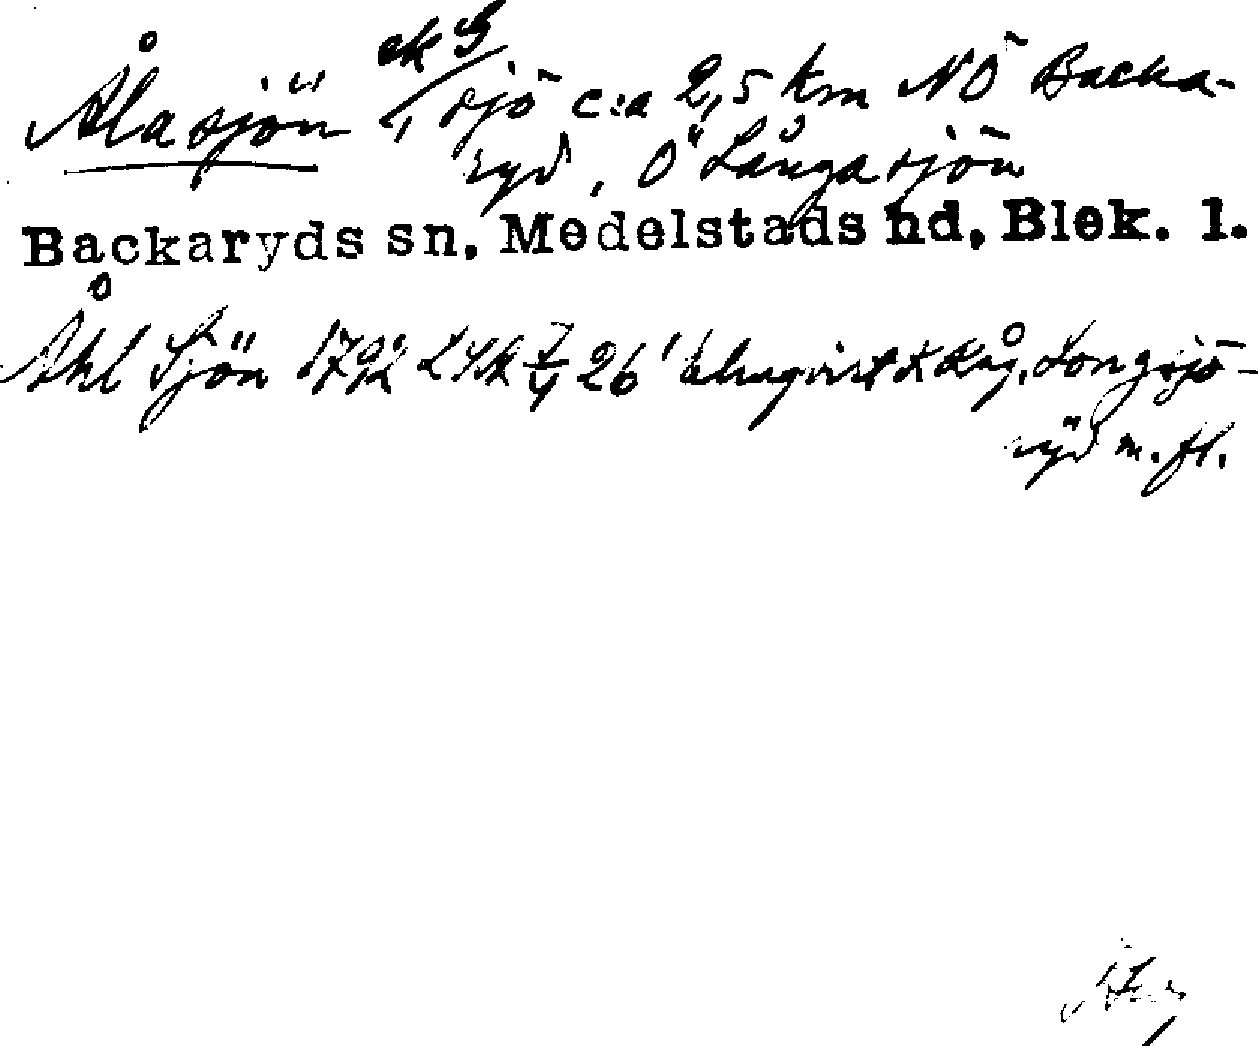 Ålasjön ek G, sjö c:a 2,5 km NÖ Backa-
ryd, Ö Långasjön
Backaryds sn, Medelstads hd, Blek. l.
Åhl Sjön 1792 LSA 26 Långsjö-
ryd m. fl.